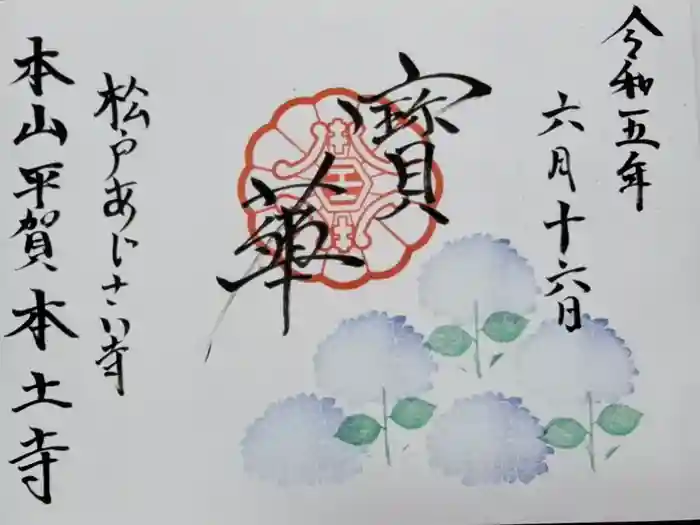 令和五年
六月十六日
寳華
松戸あじさい寺
本山平賀本土寺